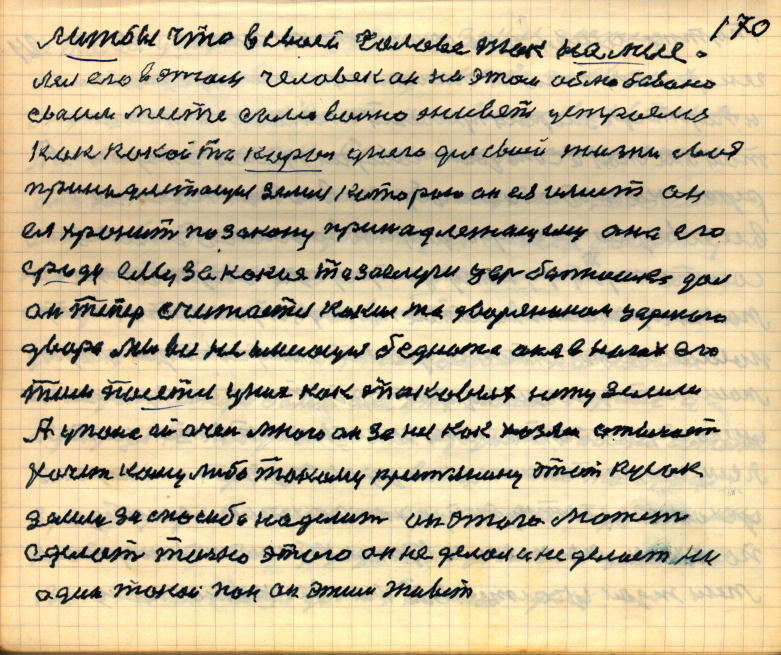 170
литбы что в своей голове так на мые.
лел его в этом человек он на этом облюбовано
своим месте само вольно живет устроема
как какой та кораол у него для свой жизни своя
принадлетащея земля которою он ея имеет он
ея хронит по закону принадлежащему она его
среди ему за какия та заслуги цар батюшка дал
он типер считается каким та дворянином царского
двора мы ви не имеющия беднота она в ногах его
там у них как таковых нету земли
А упона ей очен много он за не как хозяи отвичает
хочет кому либо такому криту этот кусок
земли за спосиба наделит он этого может
сделат тоно этого он не делал и не делает ни
один такой пан он этим живет